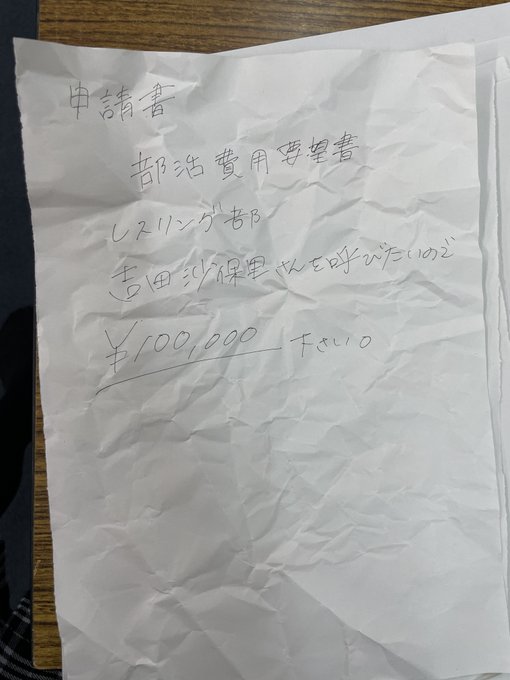 申請書
部活費用要望書
レスリング部
吉田沙保里さんを呼びたいので
¥100,000 下さい。